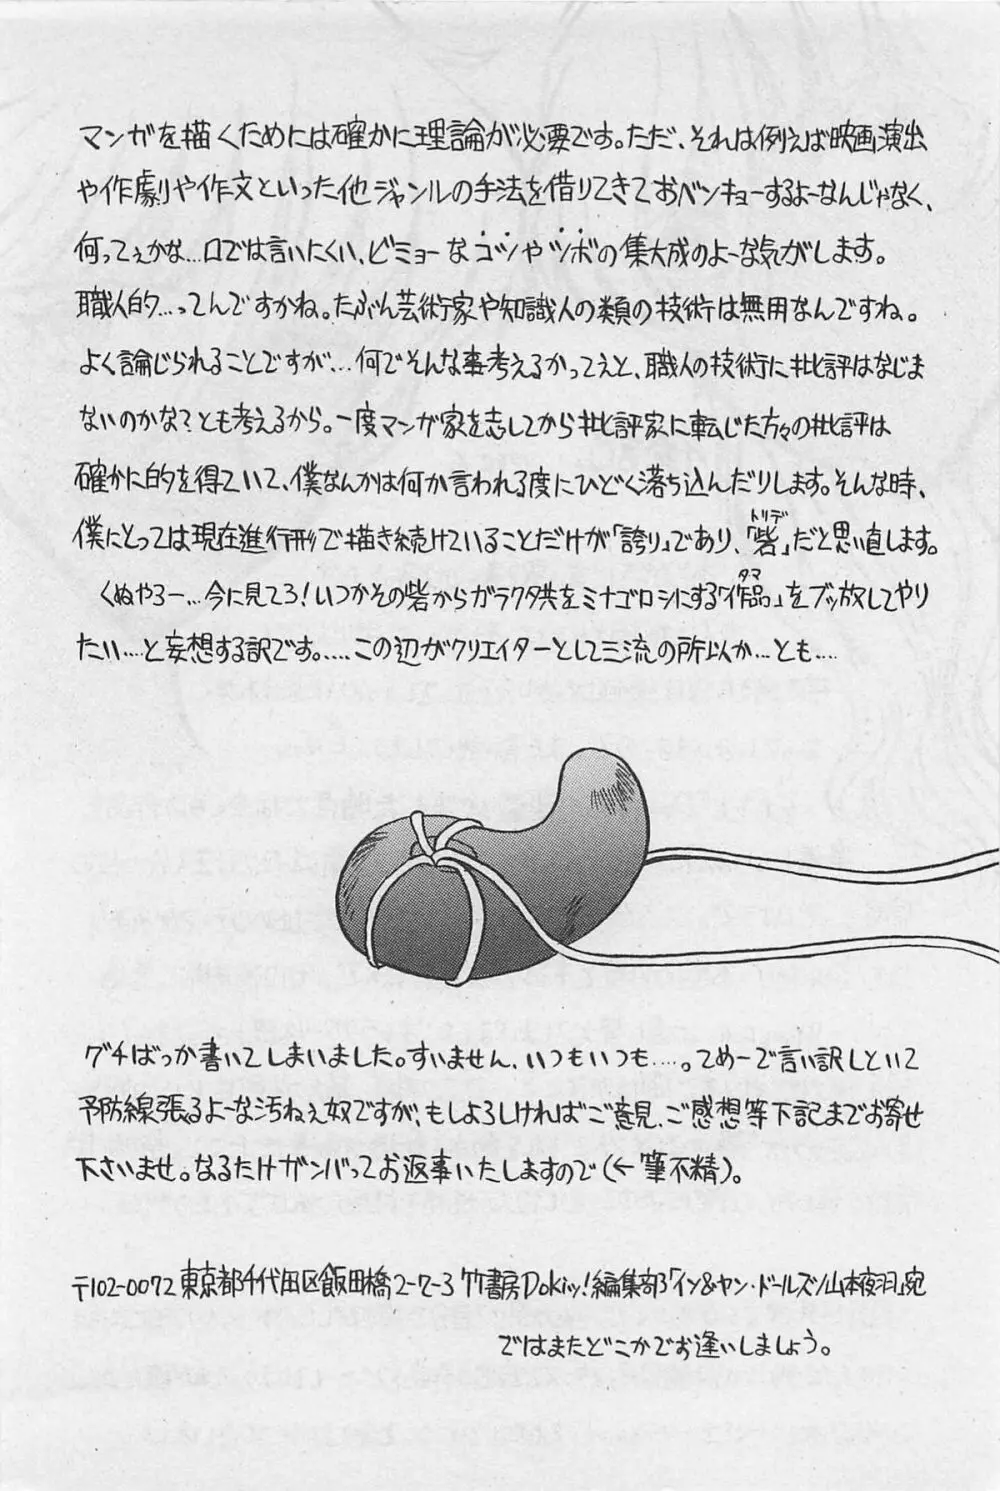 マンガを描くためには確かに理論が必要です。ただ、それは例えば映画演出
や作劇や作文といった他ジャンルの手法を借りてきておベンキョーするよーなんじゃなく、
何ってぇかな…口では言いにくい、ビミョーなコツやツボの集大成のよーな気がします。
職人的…ってんですかね。たぶん芸術家や知識人の類の技術は無用なんですね。
よく論じられることですが…何でそんな事考えるかってえと、職人の技術に批評はなじま
ないのかな？とも考えるから。一度マンガ家を志してから批評家に転じた方々の批評は
確かに的を得ていて、僕なんかは何か言われる度にひどく落ち込んだりします。そんな時、
トリデ
僕にとっては現在進行形で描き続けていることだけが「誇り」であり、「砦」だと思い直します。
タマ
くぬやろー…今に見てろ！いつかその砦からガラクタ共をミナゴロシにする「作品」をブッ放してやり
たい…と妄想する訳です。…この辺がクリエイターとして三流の所以か…とも…
グチばっか書いてしまいました。すいません、いつもいつも…。てめーで言い訳しといて
予防線張るよーな汚ねぇ奴ですが、もしよろしければご意見、ご感想等下記までお寄せ
下さいませ。なるたけガンバってお返事いたしますので（←筆不精）。
〒102-0072 東京都千代田区飯田橋2-7-3 竹書房Dokiッ!編集部「イン&ヤン・ドールズ/山本夜羽」宛
ではまたどこかでお逢いしましょう。